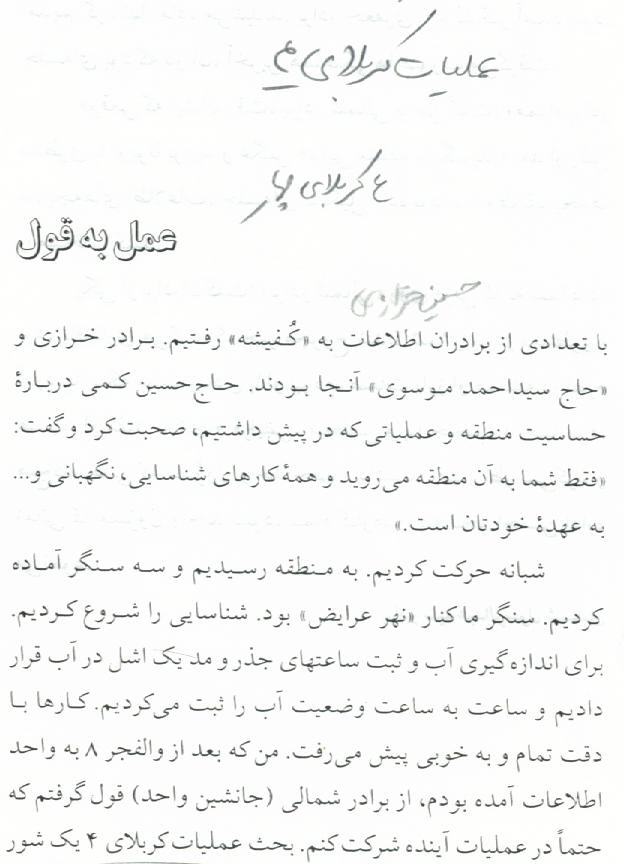 عملیات کربلای ۴
ع کربلای چهار
عمل به قول
حسین خرازی
با تعدادی از برادران اطلاعات به «کُفیشه» رفتیم. برادر خرازی و
«حاج سیداحمد موسوی» آنجا بودند. حاج‌حسین کمی دربارهٔ
حساسیت منطقه و عملیاتی که در پیش داشتیم، صحبت کرد و گفت:
«فقط شما به آن منطقه می‌روید و همهٔ کارهای شناسایی، نگهبانی و...
به عهدهٔ خودتان است.»
شبانه حرکت کردیم. به منطقه رسیدیم و سه سنگر آماده
کردیم. سنگر ما کنار «نهر عرایض» بود. شناسایی را شروع کردیم.
برای اندازه‌گیری آب و ثبت ساعتهای جذر و مد یک اشل در آب قرار
دادیم و ساعت به ساعت وضعیت آب را ثبت می‌کردیم. کارها با
دقت تمام و به خوبی پیش می‌رفت. من که بعد از والفجر ۸ به واحد
اطلاعات آمده بودم، از برادر شمالی (جانشین واحد) قول گرفتم که
حتماً در عملیات آینده شرکت کنم. بحث عملیات کربلای ۴ یک شور